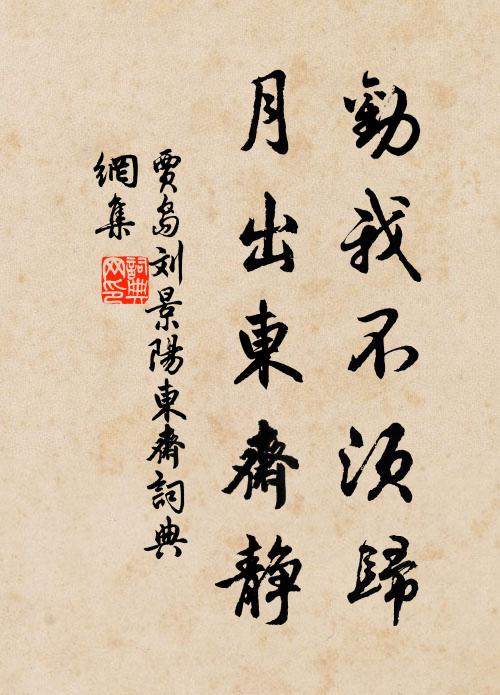 勸我不須歸
月出東齋静
賈島刘景陽東齋詞典
網集
詞典
网印